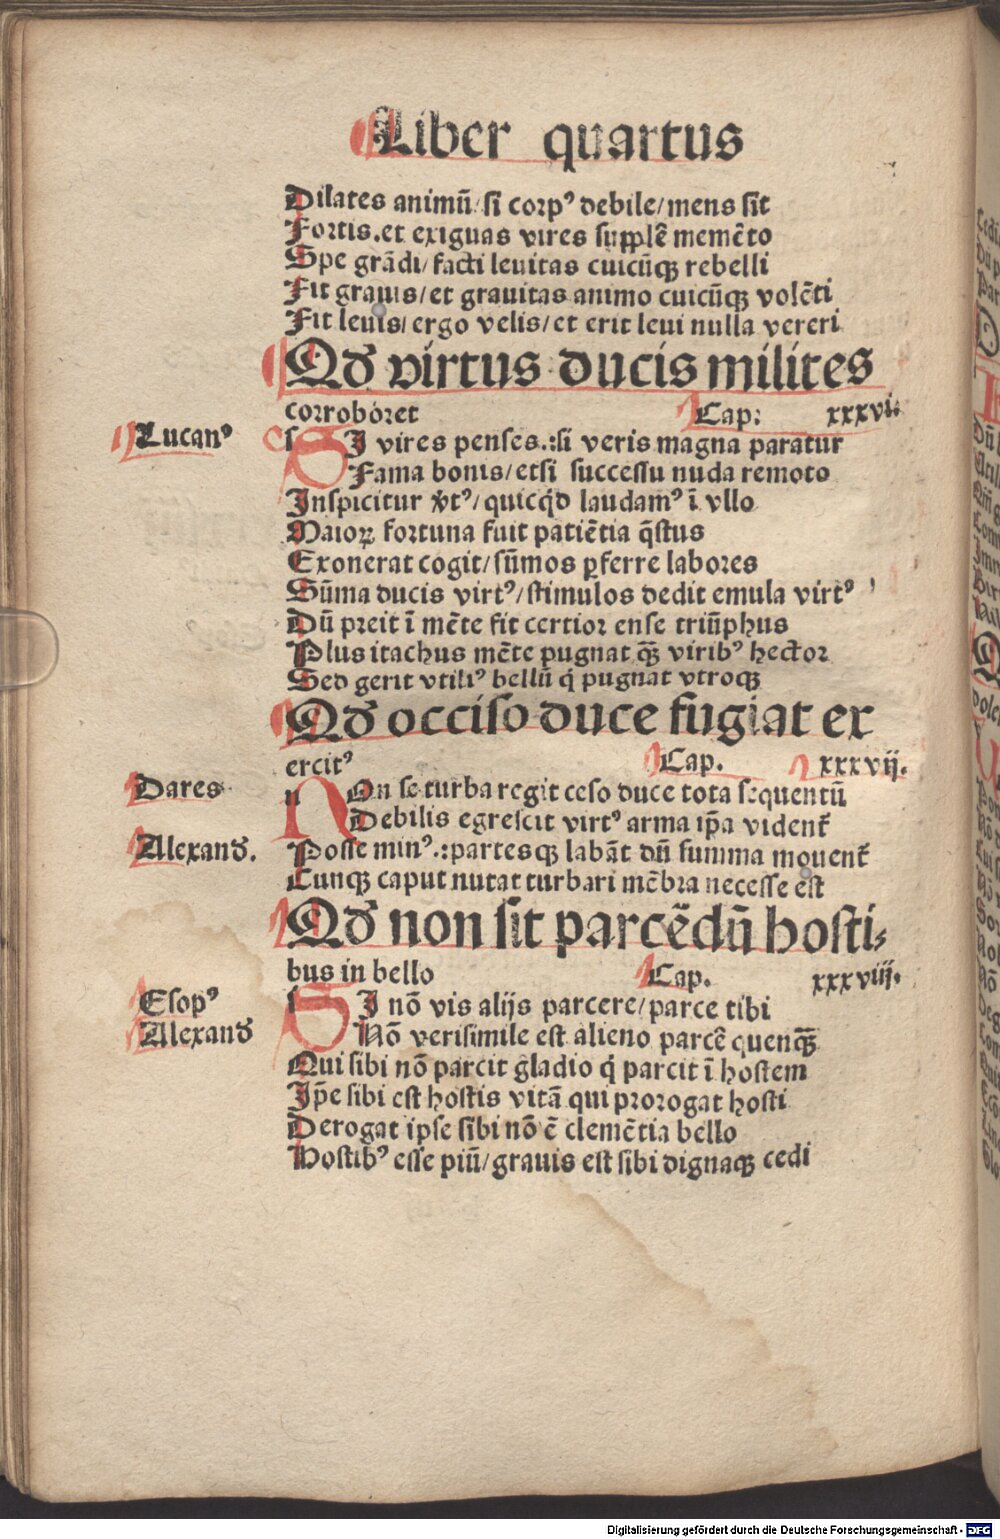 Liber quartus
Dilates animū/si corpꝰ debile/mens sit
Fortis.et exiguas vires supplē memēto
Spe grādi/facti leuitas cuicūqꝫ rebelli
Fit grauis/et grauitas animo cuicūqꝫ volēti
Fit leuis/ergo velis/et erit leui nulla vereri
Qd virtus ducis milites
corroboret Cap: xxxvi.
Lucanꝰ
SI vires penses.:si veris magna paratur
Fama bonis/etsi successu nuda remoto
Inspicitur v̄tꝰ/quicqd laudamꝰ ī vllo
Maioꝝ fortuna fuit patiētia q̄stus
Exonerat cogit/sūmos ꝑferre labores
Sūma ducis virtꝰ/stimulos dedit emula virtꝰ
Dū preit ī mēte fit certior ense triūphus
Plus itachus mēte pugnat qꝫ̄ viribꝰ hector
Sed gerit vtiliꝰ bellū q̇ pugnat vtroqꝫ
Qd occiso duce fugiat ex
ercitꝰ Cap. xxxvij.
Dares
NOn se turba regit ceso duce tota sequentū
Debilis egrescit virtꝰ arma ip̄a vident̄
Alexand.
Posse minꝰ.:partesqꝫ labāt dū summa mouent̄
Cunqꝫ caput nutat turbari mēbra necesse est
Qd non sit parcēdū hosti⸗
bus in bello Cap. xxxviij.
Esopꝰ
SI nō vis alijs parcere/parce tibi
Alexand
Nō verisimile est alieno parcē quenqꝫ̄
Qui sibi nō parcit gladio q̇ parcit ī hostem
Ip̄e sibi est hostis vitā qui prorogat hosti
Derogat ipse sibi nō ē clemētia bello
Hostibꝰ esse piū/grauis est sibi dignaqꝫ cedi
Digitalisierung gefördert durch die Deutsche Forschungsgemeinschaft - DFG